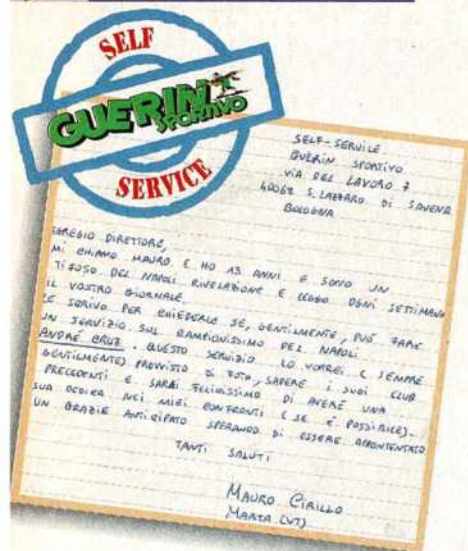 SELF
GUERIN
SPORTIVO
SERVICE
SELF-SERVICE
GUERIN SPORTIVO
VIA DEL LAVORO 7
40068 S. LAZZARO DI SAVENA
BOLOGNA
EGREGIO DIRETTORE,
MI CHIAMO MAURO E HO 13 ANNI E SONO UN
TIFOSO DEL NAPOLI RIVELAZIONE E LEGGO OGNI SETTIMANA
IL VOSTRO GIORNALE.
LE SCRIVO PER CHIEDERLE SE, GENTILMENTE, PUÓ FARE
UN SERVIZIO SUL CAMPIONISSIMO DEL NAPOLI
ANDRÉ CRUZ. QUESTO SERVIZIO LO VORREI (SEMPRE
GENTILMENTE) PROVVISTO DI FOTO, SAPERE I SUOI CLUB
PRECEDENTI E SARÁI FELICISSIMO DI AVERE UNA
SUA DEDICA NEI MIEI CONFRONTI (SE É POSSIBILE).
UN GRAZIE ANTICIPATO SPERANDO DI ESSERE ACCONTENTATO
TANTI SALUTI
MAURO CIRILLO
MARTA (VT)